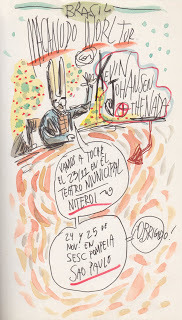 BRASIL
MACANUDO
KEVIN
JOHANSEN
THE NADA
VAMOS A TOCAR
EL 23/11 EN EL
TEATRO MUNICIPAL
NITEROI
24 Y 25 DE
NOV: EN
SESC POMPEIA
SAO PAULO
¡OBRIGADO!